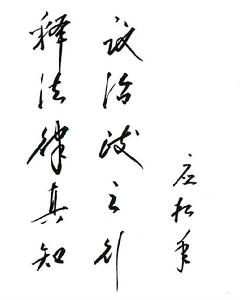 议治政之
释法律真知
应松年